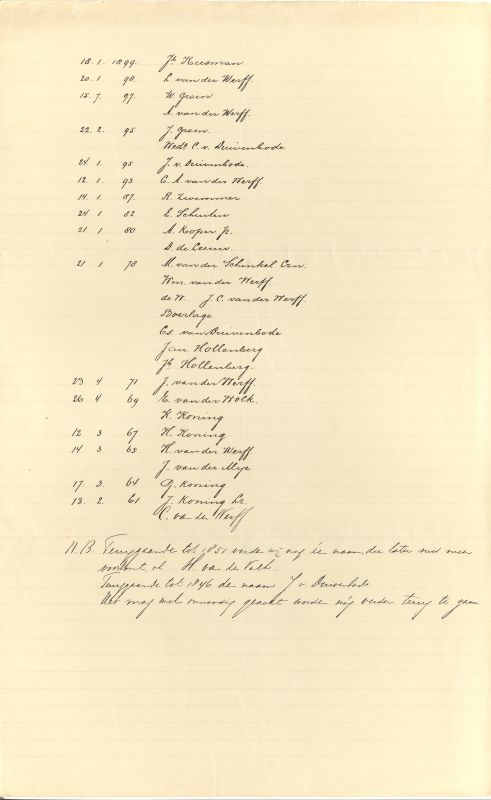 18. 1. 1899 Jb. Heesman
20. 1 98. L. van der Werff
15. 7. 97. W. Groen
A. van der Werff.
22. 2. 95 J. Groen.
Wedᵉ C. v. Duivenbode
24. 1. 95 J. v. Duivenbode.
12. 1. 93 C. A. van der Werff
14. 1. 87. R. Zwemmer
24 1 82 E. Schuiten
21 1 80 A. Koper Jz.
D. de Leeuw
21 1. 78 M. van der Schinkel Czn.
Wm. van der Werff
de W. J. C. van der Werff.
Boerlage
Cs. van Duivenbode
Jan Hollenberg
Jb. Hollenberg.
23 4 71 J. van der Werff.
26 4 69 E. van der Wolk.
K. Koning
12 3 67 H. Koning
14 3 65 H. van der Werff
J. van der Meije
17. 3. 64 G. Koning
13. 2. 61 J. Koning Lz.
C. van der Werff
N.B. Teruggaande tot 1851 vinden wij nog één naam die later niet meer
voorkomt, nl: H. van de Valk.
Teruggaande tot 1846 de naam J. v. Duivenbode
Het mag wel onnoodig geacht worden nóg verder terug te gaan